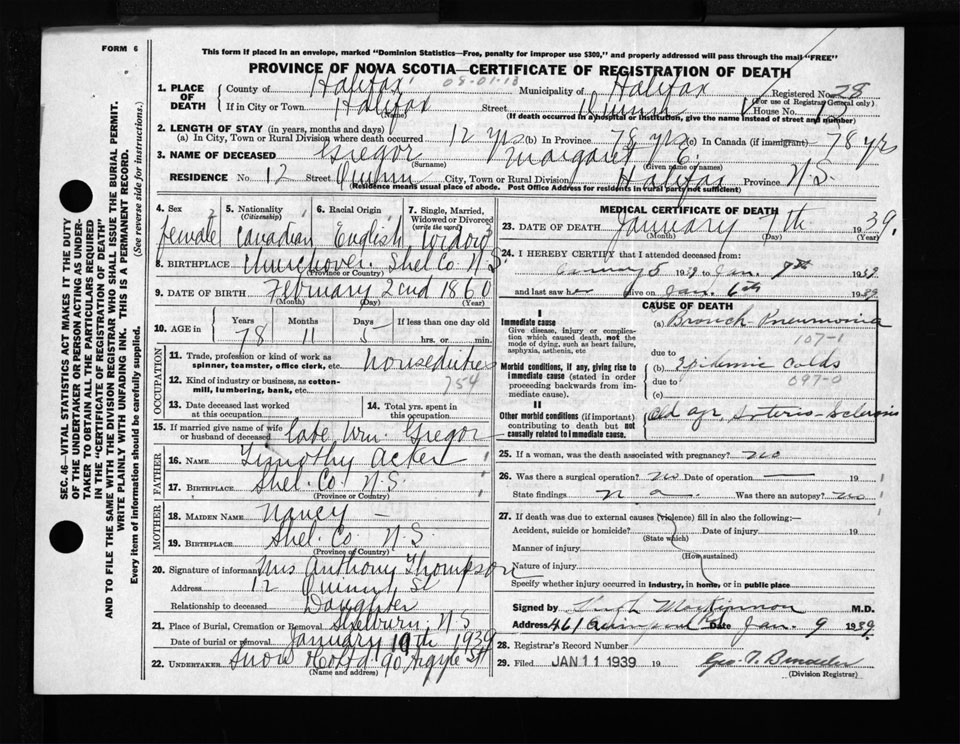 FORM 6
This form if placed in an envelope, marked "Dominion Statistics—Free, penalty for improper use $300," and properly addressed will pass through the mail "FREE"
PROVINCE OF NOVA SCOTIA—CERTIFICATE OF REGISTRATION OF DEATH
08-01-18
1. PLACE OF DEATH County of Halifax Municipality of Halifax Registered No. 28
(For use of Registrar General only)
If in City or Town Halifax Street Quinn House No.
(Name) (If death occurred in a hospital or institution, give the name instead of street and number)
2. LENGTH OF STAY (in years, months and days)
(a) In City, Town or Rural Division where death occurred 12 yrs (b) In Province 78 yrs (c) In Canada (if immigrant) 78 yrs
3. NAME OF DECEASED Gregor Margaret E.
(Surname) (Given name or names)
RESIDENCE No. 12 Street Quinn City, Town or Rural Division Halifax Province N.S.
(Residence means usual place of abode. Post Office Address for residents in rural parts not sufficient)
4. Sex Female
5. Nationality (Citizenship) Canadian
6. Racial Origin English
7. Single, Married, Widowed or Divorced (write the word) Widow
8. BIRTHPLACE Churchover Shel Co N.S.
(Province or Country)
9. DATE OF BIRTH February 2nd 1860
(Month) (Day) (Year)
10. AGE in Years 78 Months 11 Days 5 If less than one day old hrs. or min.
OCCUPATION
11. Trade, profession or kind of work as spinner, teamster, office clerk, etc. Houseduties
12. Kind of industry or business, as cotton-mill, lumbering, bank, etc. 754
13. Date deceased last worked at this occupation
14. Total yrs. spent in this occupation
15. If married give name of wife or husband of deceased Late Wm. Gregor
FATHER
16. NAME Timothy Acker
17. BIRTHPLACE Shel. Co. N.S.
(Province or Country)
MOTHER
18. MAIDEN NAME Nancy —
19. BIRTHPLACE Shel. Co. N.S.
(Province or Country)
20. Signature of informant Mrs Anthony Thompson
Address 12 Quinn St
Relationship to deceased Daughter
21. Place of Burial, Cremation or Removal Shelburn N.S
Date of burial or removal January 10th 1939
22. UNDERTAKER Snow Co Ltd 90 Argyle St
(Name and address)
MEDICAL CERTIFICATE OF DEATH
23. DATE OF DEATH January 7th 1939.
(Month) (Day) (Year)
24. I HEREBY CERTIFY that I attended deceased from:
January 5 1939 to Jan. 7th 1939
and last saw her alive on Jan. 6th 1939
CAUSE OF DEATH
I
Immediate cause
Give disease, injury or complication which caused death, not the mode of dying, such as heart failure, asphyxia, asthenia, etc
(a) Bronch Pneumonia
107-1
due to
Morbid conditions, if any, giving rise to immediate cause (stated in order proceeding backwards from immediate cause).
(b) Epidemic Colds
due to 097-0
(c)
II
Other morbid conditions (if important) contributing to death but not causally related to immediate cause.
Old age, Arterio-Sclerosis
25. If a woman, was the death associated with pregnancy? no
26. Was there a surgical operation? no Date of operation — 19
State findings n. a. Was there an autopsy? no
27. If death was due to external causes (violence) fill in also the following:—
Accident, suicide or homicide? Date of injury 19
(State which)
Manner of injury
(How sustained)
Nature of injury
Specify whether injury occurred in industry, in home, or in public place
Signed by Hugh MacKinnon M.D.
Address 461 Quinpool Rd Date Jan. 9 1939.
28. Registrar's Record Number
29. Filed JAN 11 1939 19
(Division Registrar)
SEC. 46—VITAL STATISTICS ACT MAKES IT THE DUTY
OF THE UNDERTAKER OR PERSON ACTING AS UNDER-
TAKER TO OBTAIN ALL THE PARTICULARS REQUIRED
IN THE "CERTIFICATE OF REGISTRATION OF DEATH"
AND TO FILE THE SAME WITH THE DIVISION REGISTRAR WHO SHALL ISSUE THE BURIAL PERMIT.
WRITE PLAINLY WITH UNFADING INK. THIS IS A PERMANENT RECORD.
Every item of information should be carefully supplied. (See reverse side for instructions.)